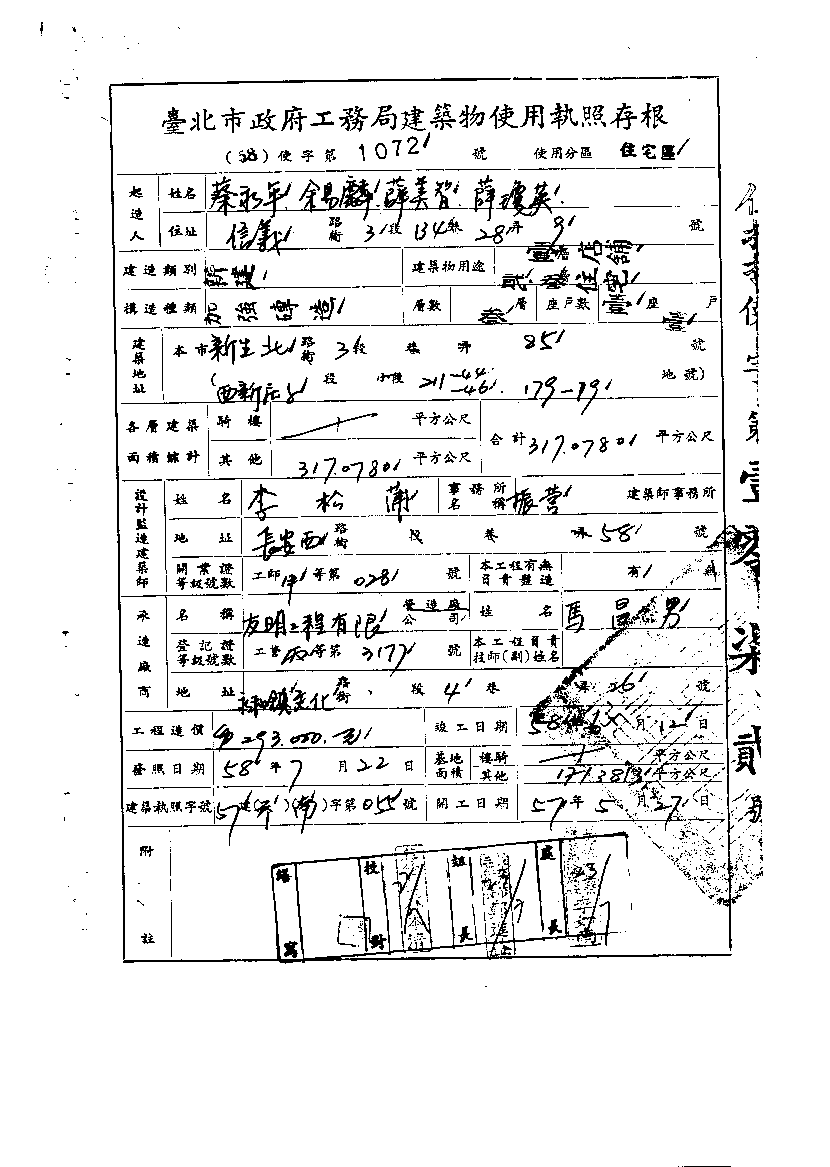 臺北市政府工務局建築物使用執照存根
(58)使字第 1072 號 使用分區 住宅區
起造人 姓名 蔡永年 錫麟 薛美智 薛瓊英
住址 信義 路街 3段 134巷 28弄 9 號
建造類別 新建 建築物用途 店舖 住宅
構造種類 加強磚造 層數 層 座戶數 壹座 壹戶
建築地址 本市 新生北 路街 3段 巷 弄 85 號
(西新庄子 段 小段 211-44 -46. 179-19 地號)
各層建築面積總計 騎樓 平方公尺 合計 317.0780 平方公尺
其他 317.0780 平方公尺
設計監造建築師 姓名 李松 事務所名稱 振營 建築師事務所
地址 長安西 路街 段 巷 弄 58 號
開業證等級號數 工師 甲 等第 028 號 本工程有無負責監造 有 無
承造廠商 名稱 友明工程有限 營造廠公司 姓名 馬昌男
登記證等級號數 工營 丙 等第 3177 號 本工程負責技師(副)姓名
地址 永和鎮文化 路街 段 4 巷 弄 26 號
工程造價 293,000.元 竣工日期 58 月 12 日
發照日期 58 年 7 月 22 日 基地面積 樓騎 平方公尺
其他 平方公尺
建築執照字號 57 建( )(南)字第 055 號 開工日期 57 年 5 月 27 日
附註
繕寫 校對 組長 處長
使字第壹零柒貳號